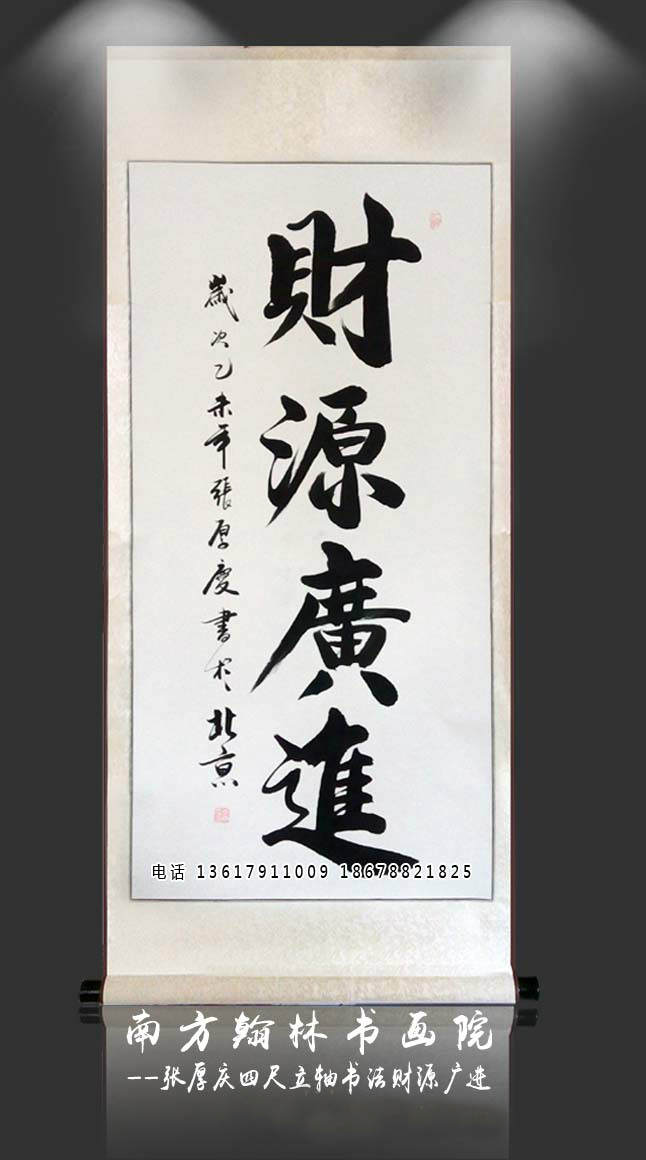 財源廣進
歲次乙未年張厚慶書於北京
电话 13617911009 18678821825
南方翰林书画院
--张厚庆四尺立轴书法财源广进